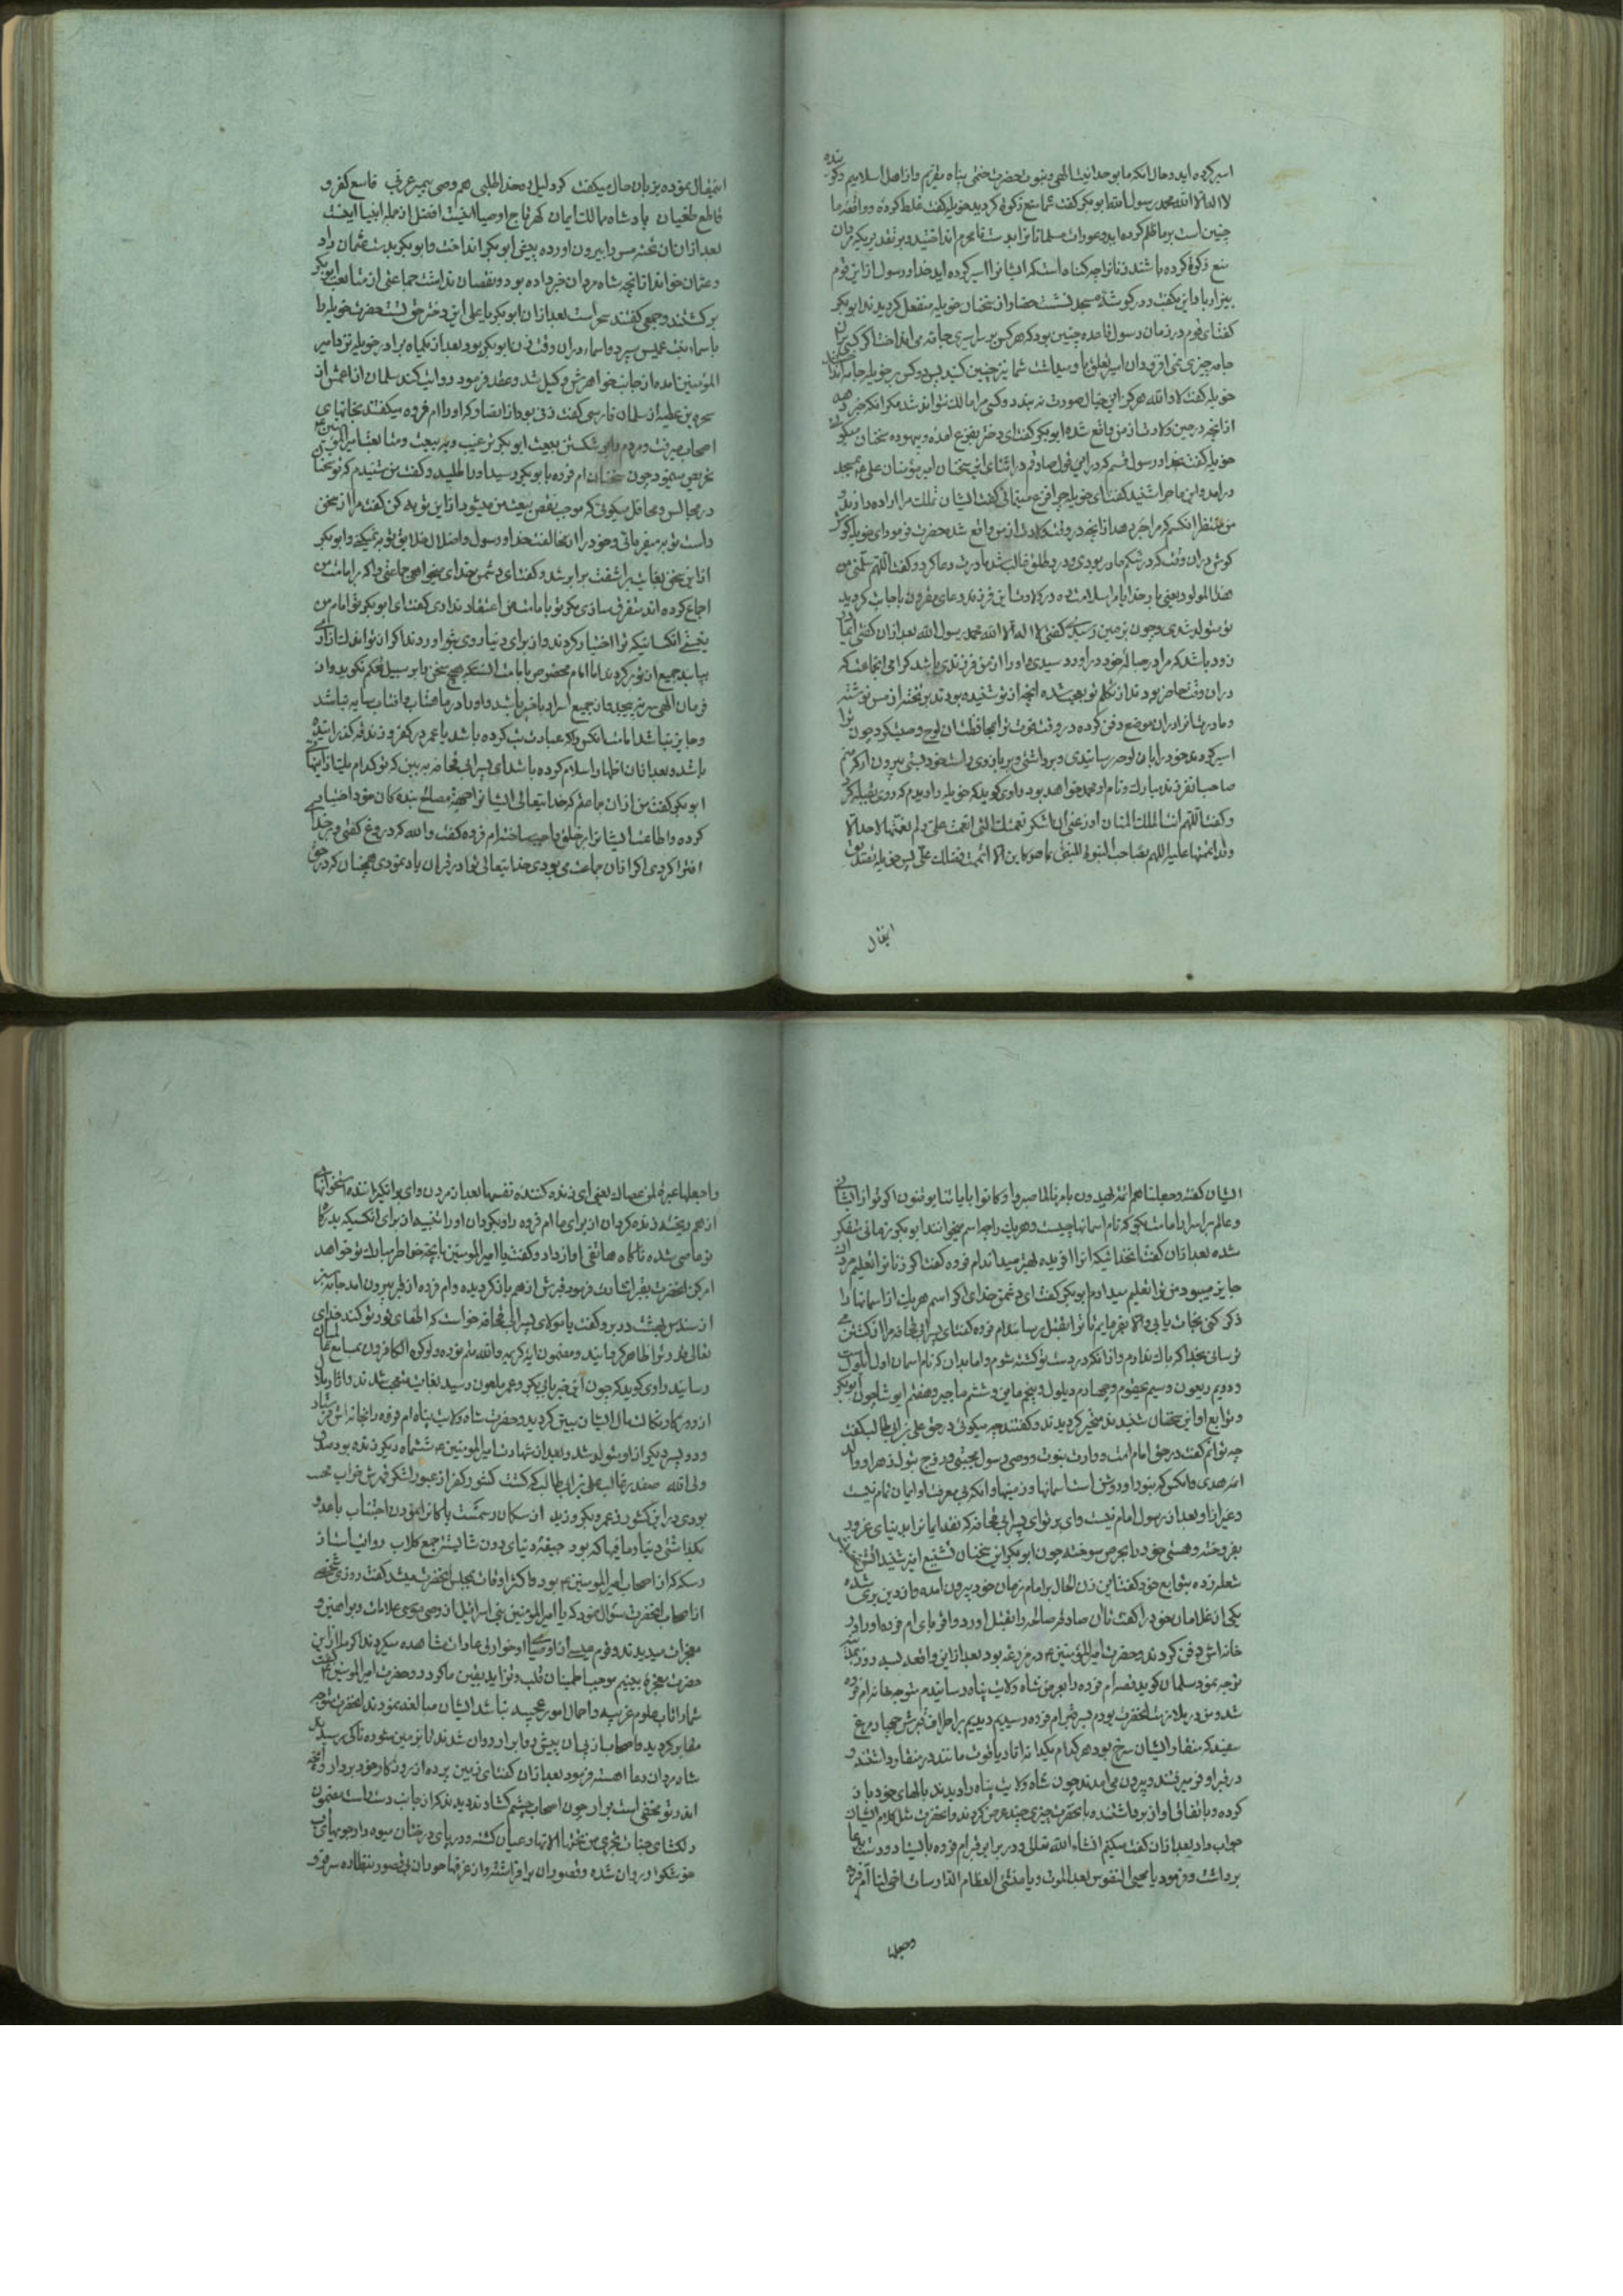 اسیر کرده اید و حال آنکه ما بوحدانیت الهی و بنبوت حضرت ختمی پناه مقریم و از اهل اسلامیم و گوینده
لا اله الا الله محمد رسول الله ابوبکر گفت شما منع زکوة کردید خویله گفت غلط کرده و واقعه ما
چنین است بر ما ظلم کرده اید و عورات مسلمانانرا بدست نامحرم انداختید و بر تقدیریکه مردان
منع زکوة کرده باشند زنانرا چه کناه است که ایشانرا اسیر کرده اید خدا و رسول از این قوم
بیزار باد این بگفت و در گوشه مسجد نشست حضار از سخنان خویله منفعل گردیدند ابوبکر
گفت ای قوم در زمان رسول قاعده چنین بود که هر کس بر سر اسیری جامه می انداخت اگر کسی بران
جامه چیزی نمی افزود ان اسیر تعلق باو میداشت شما نیز چنین کنید پس دو کس بر خویله جامه انداختند
خویله گفت لا والله هرگز این خیال صورت نه بندد و کسی مرا مالک نتواند شد مگر آنکه خبر دهد
از آنچه در حین ولادت از من واقع شده ابوبکر گفت ای دختر بفزع امده و بیهوده سخنان میگوئی
خویله گفت بخدا و رسول قسم که در این قول صادقم در اثنای این سخنان امیر مؤمنان علی ع بمسجد
درامد و این ماجرا شنید گفت ای خویله چرا فزع مینمائی گفت ایشان تملک مرا اراده دارند و
من منتظر انکسم که مرا خبر دهد از آنچه در وقت ولادت از من واقع شده حضرت فرمود ای خویله گوش
کن دران وقت که در شکم مادر بودی و درد طلق غالب شد مادرت دعا کرد و گفت اللهم سلمنی من
هذا المولود یعنی بار خدایا مرا سلامت ده در ولادت این فرزند دعای مقرون باجابت گردید
تو متولد شدی و چون بزمین رسیدی گفتی لا اله الا الله محمد رسول الله بعد ازان گفتی ای مادر
زود باشد که مرا در حباله خود دراورد سیدی و او را از من فرزندی باشد گرامی انجماعت که
دران وقت حاضر بودند از تکلم تو بعجب شده انچه از تو شنیده بودند بر تخته از مس نوشتند
و مادرت انرا دران موضع دفن کرده در وقت فوت ترا بمحافظت ان لوح وصیت کرد چون ترا
اسیر کردند خود را بان لوح رسانیدی و برداشتی و بر بازوی راست خود بستی بیرون آر که منم
صاحب انفرزند مبارک و نام او محمد خواهد بود راوی گوید که خویله را دیدم که روی بقبله کرد
و گفت اللهم انت الملک المنان اوزعنی ان اشکر نعمتک التی انعمت علی و لم تعطها لاحد الا
وقد اتممتها علیه اللهم بصاحب النبوة المنبئ بما هو کاین الا اتممت فضلک علی پس خویله بقتدیق
انتقال
انتقال نموده بزبان حال میگفت کرد لیل و محمد الطلبی هم وصی پیمبر عربی قامع کفر و
قاطع طغیان پادشاه ممالک ایمان گهر تاج اوصیا اینست افضل از جمله انبیا اینست
بعد ازان ان تخته مس را بیرون اورده پیش ابوبکر انداخت و ابوبکر بدست عثمان داد
و عثمان خواند از آنچه شاه مردان خبر داده بود و نقصان نداشت جماعتی از متابعت ابوبکر
برگشتند و جمعی گفتند سحر است بعد ازان ابوبکر با علی این دختر حق تست حضرت خویله را
باسماء بنت عمیس سپرد و اسماء دران وقت زن ابوبکر بود بعد از یکماه برادر خویله نزد امیر
المؤمنین امده از جانب خواهرش وکیل شد و عقد فرمود روایت کند سلمان از اعمش از
سمره بن عطیه از سلمان فارسی گفت زنی بود از انصار که او را ام فروه میگفتند بخانهای
اصحاب میرفت و مردم را بر شکستن بیعت ابوبکر ترغیب و بر بیعت و متابعت امیر المؤمنین ع
تحریص مینمود چون سخنان ام فروه بابوبکر رسید او را طلبید و گفت من شنیدم که تو سخنان
در مجالس و محافل میگوئی که موجب نقض بیعت من میشود از این توبه کن گفت مرا از سخن
راست توبه میفرمائی و خود را از مخالفت خدا و رسول و اضلال خلایق توبه نمیکنی و ابوبکر
از این سخن بغایت براشفت برابر شد و گفت ای دشمن خدای میخواهی جماعتی را که بر امامت من
اجماع کرده اند متفرق سازی مگر تو بامامت من اعتقاد نداری گفت ای ابوبکر تو امام من
نیستی انکسانیکه ترا اختیار کردند و از برای دنیا روی بتو اوردند اکر ان توانند از آن
بیایند جمیع ان تورگردند اما امام مخصوص بامامت انست که هیچ سخن را بر سبیل تحکم نگوید و ان
فرمان الهی سر نه پیچد و از جمیع اسرار باخبر باشد و او را در ماهتاب و افتاب سایه نباشد
و جایز نباشد امامت انکس را که عبادت بت کرده باشد یا عمر در کفر و زندقه گذرانیده
باشد و بعد ازان اظهار اسلام کرده باشد ای پسر ابی قحافه به بین که تو کدام یک از اینها
ابوبکر گفت من ازان جماعتم که خدایتعالی ایشانرا بجهة مصالح بندگان خود اختیار
کرده و اطاعت ایشانرا بر خلق واجب ساخته ام فروه گفت والله که دروغ گفتی و بر خدا
افترا کردی اگر ازان جماعت می بودی خدایتعالی ترا در قران یاد نمودی همچنان که در حق
ایشان گفته وجعلنا هم ائمة یهدون بامرنا لما صبروا و کانوا بایاتنا یوقنون اگر تو از ایشانی
و عالم بر اسرار امامت بگو که نام اسمانها چیست و هر یک را چه اسم میخوانند ابوبکر زمانی متفکر
شده بعد ازان گفت انخدائیکه انرا افریده بهتر میداند ام فروه گفت اگر زنانرا تعلیم مردان
جایز میبود من ترا تعلیم میدادم ابوبکر گفت ای دشمن خدای اگر اسم هر یک از اسمانها را
ذکر کنی نجات یابی والا بفرمایم تا ترا بقتل رسانند ام فروه گفت ای پسر ابی قحافه مرا از کشتن می
ترسانی بخدا که باک ندارم و از انکه در دست تو کشته شوم و اما بدان که نام اسمان اول ایلول است
و دویم ربعون و سیم سحقوم و چهارم دیلول و پنجم ماین و ششم ماجیر و هفتم ایوث چون ابوبکر
و توابع او این سخنان شنیدند متحیر گردیدند و گفتند چه میگوئی در حق علی بن ابی طالب گفت
چه توانم گفت در حق امام امت و وارث نبوت و وصی رسول مجتبی و زوج بتول زهرا و والد
ائمه هدی و انکس که بنور او روشن است اسمانها و زمینها و انکه بی معرفت او ایمان تمام نیست
و غیر از او بعد از رسول امام نیست وای بر تو ای پسر ابی قحافه که نقد ایمانرا بدنیای غرور
بفروخته و هستی خود را بحرص سوخته چون ابوبکر این سخنان تشنیع امیز شنید اتش غضب
شعله زده بتوابع خود گفت این زن الحال بر امام زمان خود بیرون امده و از دین بری شده
یکی از غلامان خود را گفت تا ان صادقه صالحه را بقتل اورد و اقربای ام فروه او را در
خانه اش دفن کردند و حضرت امیر المؤمنین ع در مزرعه بود بعد از این واقعه بسه روز بمدینه
توجه نمود سلمان گوید قصه ام فروه را بعرض شاه ولایت پناه رسانیدم متوجه خانه ام فروه
شد و من در ملازمت انحضرت بودم بسر قبر ام فروه رسیدیم دیدیم بر اطراف قبرش چهار مرغ
سفید که منقار ایشان سرخ بود هر کدام یکدانه انار یا یاقوت مانند در منقار داشتند و
در قبر او فرو میرفتند و بیرون می امدند چون شاه ولایت پناه را دیدند بالهای خود باز
کرده و باتفاق اواز برداشتند و با حضرت چیزی چند عرض کردند و انحضرت مثل کلام ایشان
جواب داد بعد ازان گفت میکنم انشاء الله تعالی و در برابر قبر ام فروه بایستاد و دست بدعا
برداشت و فرمود یا محیی النفوس بعد الموت و یا منشئ العظام الدارسات احی لنا ام فروه
وجعلها
واجعلها عبرة لمن عصاک یعنی ای زنده کننده نفسها بعد از مردن و ای برانگیزاننده استخوانها
از هم ریخته زنده کردان از برای ما ام فروه را و بگردان او را تنبیهی از برای انکسیکه بدرگاه
تو عاصی شده ناگاه هاتفی اواز داد و گفت یا امیر المؤمنین بانچه خواطر مبارک تو خواهد
امر کن انحضرت بقبر اشارت فرمود قبرش از هم باز گردیده و ام فروه از قبر بیرون امد جامه سبز
از سندس بهشت در بر و گفت یا مولای پسر ابی قحافه خواست که اطفای نور تو کند خدای
تعالی قدر ترا ظاهر گردانید و مضمون ایه کریمه والله متم نوره ولو کره الکافرون بمسامع عالمیان
رسانید راوی گوید که چون این خبر بابی بکر و عمر ملعون رسید بغایت متعجب شدند و اثار ملال
از روزگار نکبت مآل ایشان مبین گردید و حضرت شاه ولایت پناه ام فروه را بخانه اش فرستاد
و دو پسر دیگر از او متولد شد و بعد از شهادت امیر المؤمنین ع ششماه دیگر زنده بود
ولی الله صفدر غالب علی بن ابی طالب که گشت کشور کفر از عبور لشکر قهرش خراب
بودی در این کشور زعمر و بکر و زید از سکان دشت پاکانرا نمودن اجتناب باعدو
بگذاشتی دنیا و مافیها که بود جیفهٔ دنیای دون شایسته جمع کلاب روایت است از
که از اصحاب امیر المؤمنین ع بود و اکثر اوقات بمجلس انحضرت میشد گفت روزی شخصی
از اصحاب انحضرت سؤال نمود که یا امیر المؤمنین بنی اسرائیل از وصی موسی علامات و براهین و
معجزات میدیدند و قوم عیسی از اوصیا او خوارق عادات مشاهده میکردند اگر ما از این
حضرت معجزهٔ بینیم موجب اطمینان قلب و تزاید یقین ما گردد و حضرت امیر المؤمنین ع گفت
شما را تاب علوم غریبه و احتمال امور عجیبه نباشد ایشان مبالغه نمودند انحضرت متوجه
مقابر گردید و اصحاب از پی ان پیش رو ابرار روان شدند تا بزمین شوره ناکی رسیدند
شاه مردان دعا اهسته فرمود بعد ازان گفت ای زمین پرده از روزگار خود بردار و انچه
اندر تو مخفی است برار چون اصحاب چشم گشادند دیدند که از جانب دست راست مضمون
دلگشای جنات تجری من تحتها الانهار عیان گشته و در پای درختان میوه دار جویهای اب
خوشگوار روان شده و قصور ان برافراشته و از غرفها حوران بی قصور بنظاره سر فرو